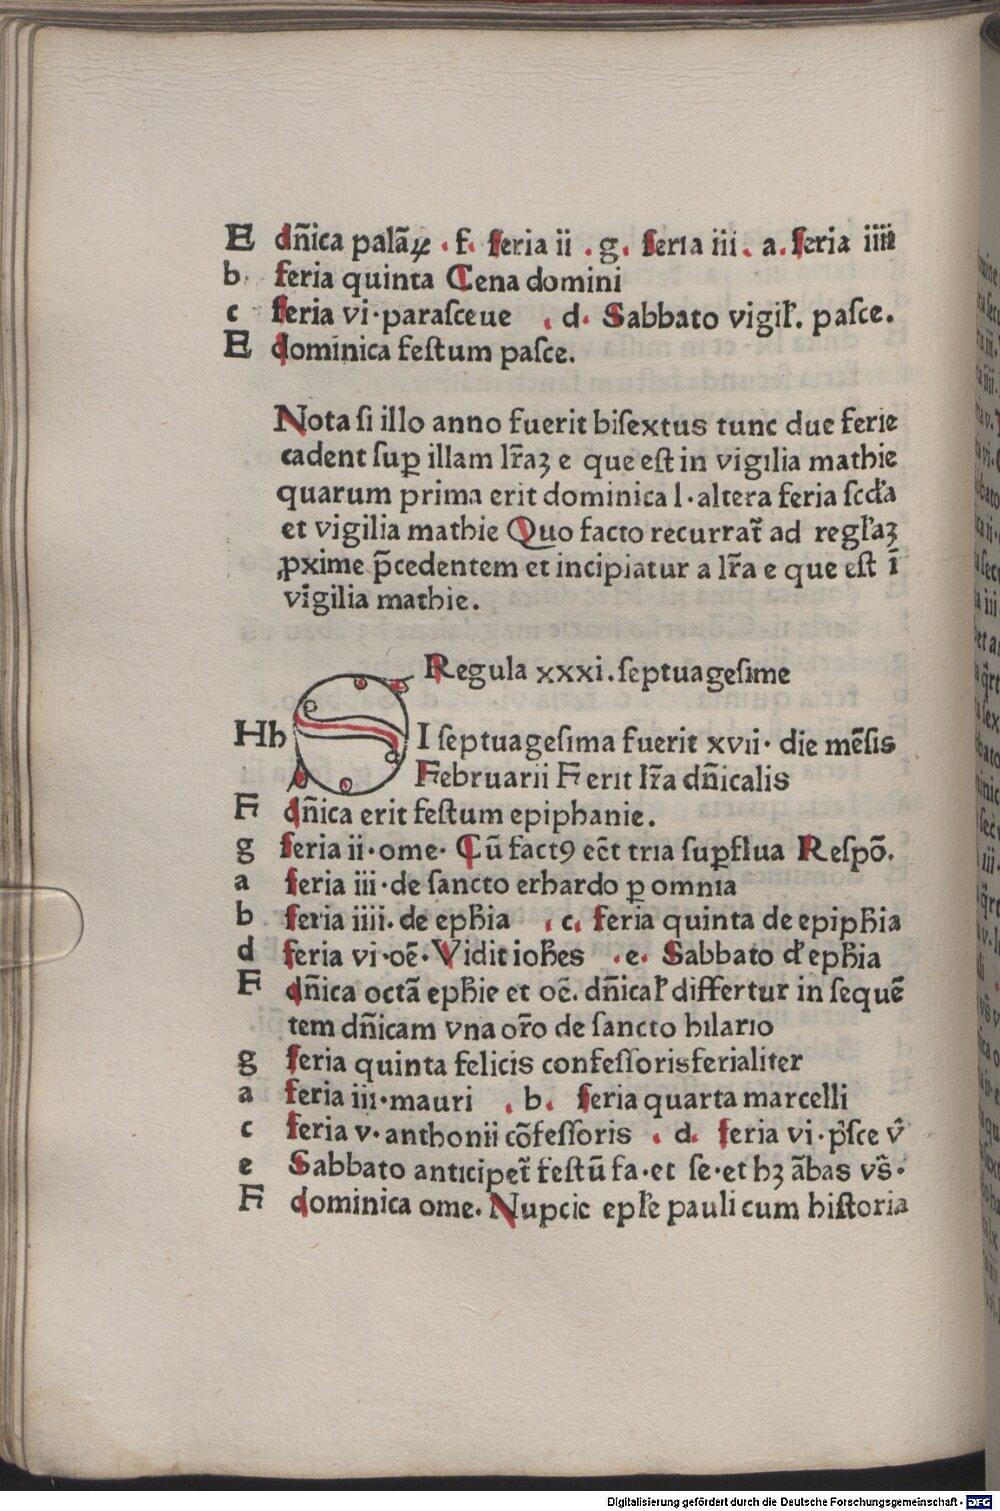 E dñica palãꝝ . f. feria ii . g. feria iii . a. feria iiii
b feria quinta Cena domini
c feria vi·parasceue . d. Sabbato vigil̃. pasce.
E dominica festum pasce.
Nota si illo anno fuerit bisextus tunc due ferie
cadent suꝑ illam lr̃aꝫ e que est in vigilia mathie
quarum prima erit dominica l·altera feria scd̃a
et vigilia mathie Quo facto recurrat̃ ad regl̃aꝫ
ꝓxime p̃cedentem et incipiatur a lr̃a e que est ī
vigilia mathie.
Regula xxxi.septuagesime
Hh SI septuagesima fuerit xvii· die mẽsis
Februarii F erit lr̃a dñicalis
F dñica erit festum epiphanie.
g feria ii·ome· Cũ factꝯ ec̃t tria suꝑflua Respõ.
a feria iii·de sancto erhardo ꝑ omnia
b feria iiii. de eph̃ia . c. feria quinta de epiph̃ia
d feria vi·oẽ·Vidit ioh̃es .e. Sabbato d̃ eph̃ia
F dñica octã eph̃ie et oẽ. dñical̃ differtur in sequẽ
tem dñicam vna or̃o de sancto hilario
g feria quinta felicis confessoris ferialiter
a feria iii·mauri . b. feria quarta marcelli
c feria v·anthonii cõfessoris . d. feria vi·p̃sce v̓
e Sabbato anticipet̃ festũ fa·et se·et hꝫ ãbas vs̃·
F dominica ome. Nupcie epl̃e pauli cum historia
Digitalisierung gefördert durch die Deutsche Forschungsgemeinschaft - DFG